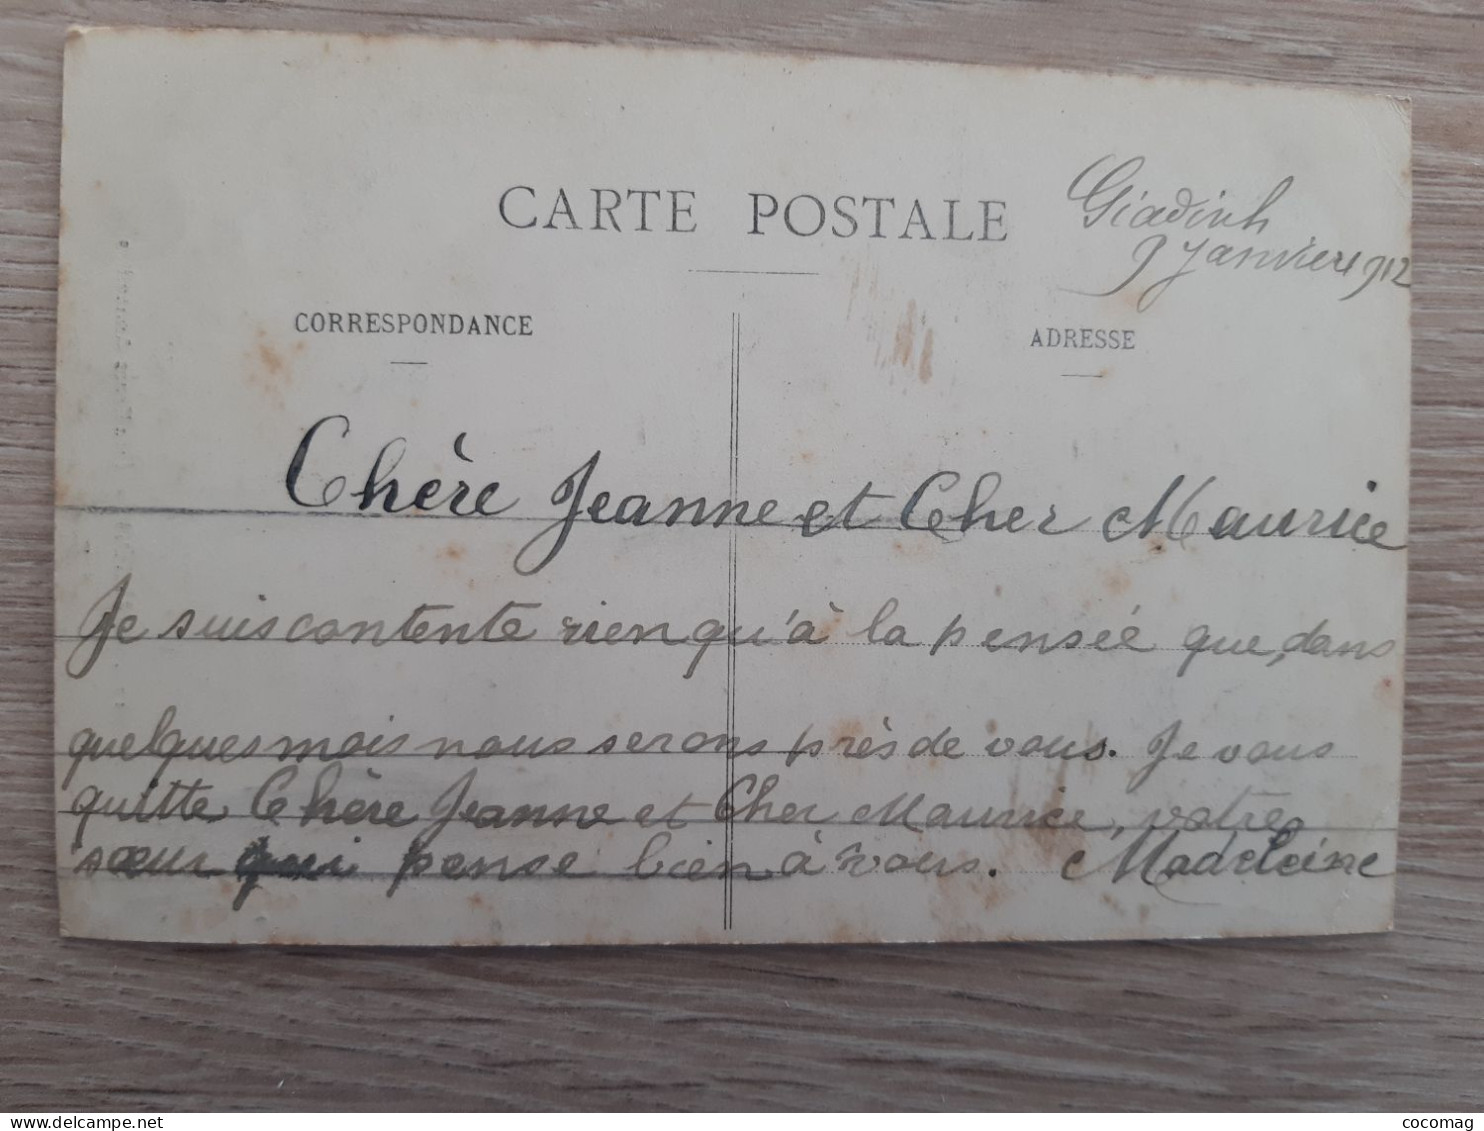 CARTE POSTALE
Giadinh
9 Janvier 1912
CORRESPONDANCE
ADRESSE
Chère Jeanne et Cher Maurice
Je suis contente rien qu'à la pensée que, dans
quelques mois nous serons près de vous. Je vous
quitte Chère Jeanne et Cher Maurice, votre
sœur qui pense bien à vous. Madeleine
cocomag